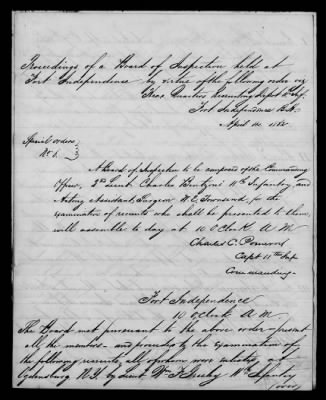 Proceedings of a Board of Inspection held at
Fort Independence by virtue of the following order viz
Head Quarters Recruiting Depot
Fort Independence B.H.
April
Special orders
No 6.
A Board of Inspection to be composed of the Commanding
Officer, 2nd Lieut Charles Bentzoni 11th Infantry and
Acting Assistant Surgeon W. E. Townsend, for the
examination of recruits who shall be presented to them,
will assemble to day at 10 O'Clock A. M.
Charles C.
Capt 11th Inf
Commanding
Fort Independence
10 O'Clock A. M.
The Board met pursuant to the above order - present
all the members - and proceeded to the examination of
the following recruits, all of whom were enlisted at
Ogdensburg N.Y. by Lieut Wm F. 11th Infantry